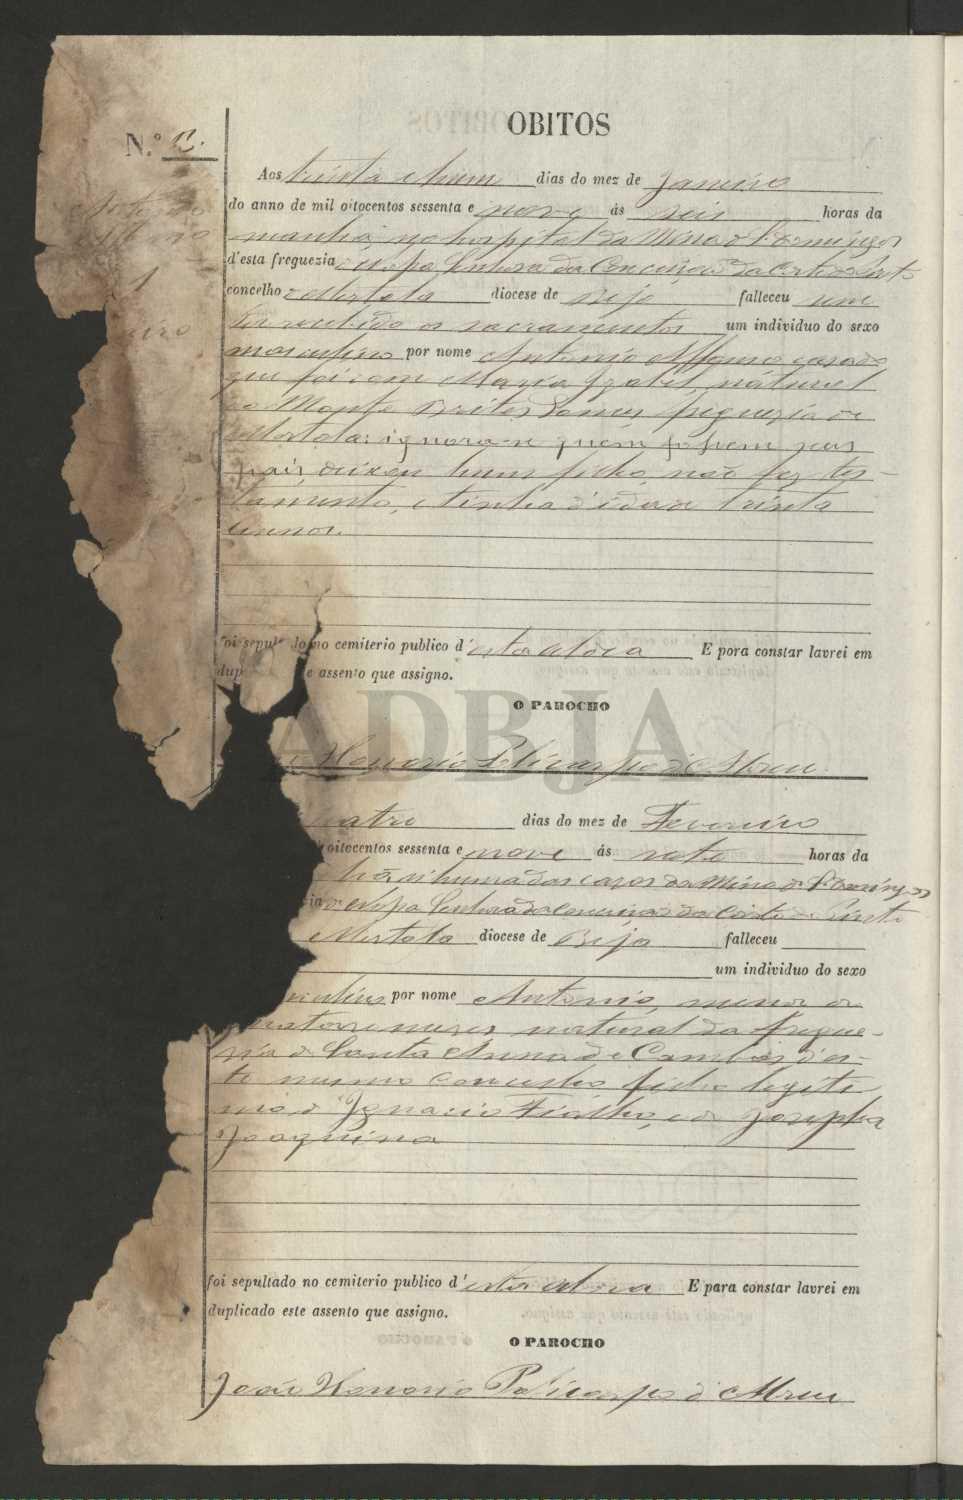 OBITOS
N.º 2.
Antonio
Affonso
Aos trinta e hum dias do mez de Janeiro
do anno de mil oitocentos sessenta e nove ás seis horas da
manhã, no hospital da Mina de S. Domingos
d'esta freguezia de Nossa Senhora da Conceição da Corte do Pinto
concelho de Mertola diocese de Beja falleceu sem
ter recebido os sacramentos um individuo do sexo
masculino por nome Antonio Affonso casado
que foi com Maria Izabel, natural
do Monte freguezia de
Mertola: ignora-se quem fossem seus
pais, deixou hum filho, não fez tes-
tamento, e tinha d'idade trinta
annos.
foi sepultado no cemiterio publico d'esta aldea E pora constar lavrei em
dup e assento que assigno.
O PAROCHO
Honorio Policarpo d'Abreu
ADBJA
uatro dias do mez de Fevereiro
oitocentos sessenta e nove ás sete horas da
hã, em huma das casas da Mina de S. Domingos
cia de Nossa Senhora da Conceição da Corte do Pinto
Mertola diocese de Beja falleceu
um individuo do sexo
masculino por nome Antonio, menor de
mezes, natural da fregue-
zia de Santa Anna de Cambas d'es-
te mesmo concelho, filho legiti
mo d'Ignacio Fialho, e de Josepha
Joaquina
foi sepultado no cemiterio publico d'esta aldea E para constar lavrei em
duplicado este assento que assigno.
O PAROCHO
João Honorio Policarpo d'Abreu